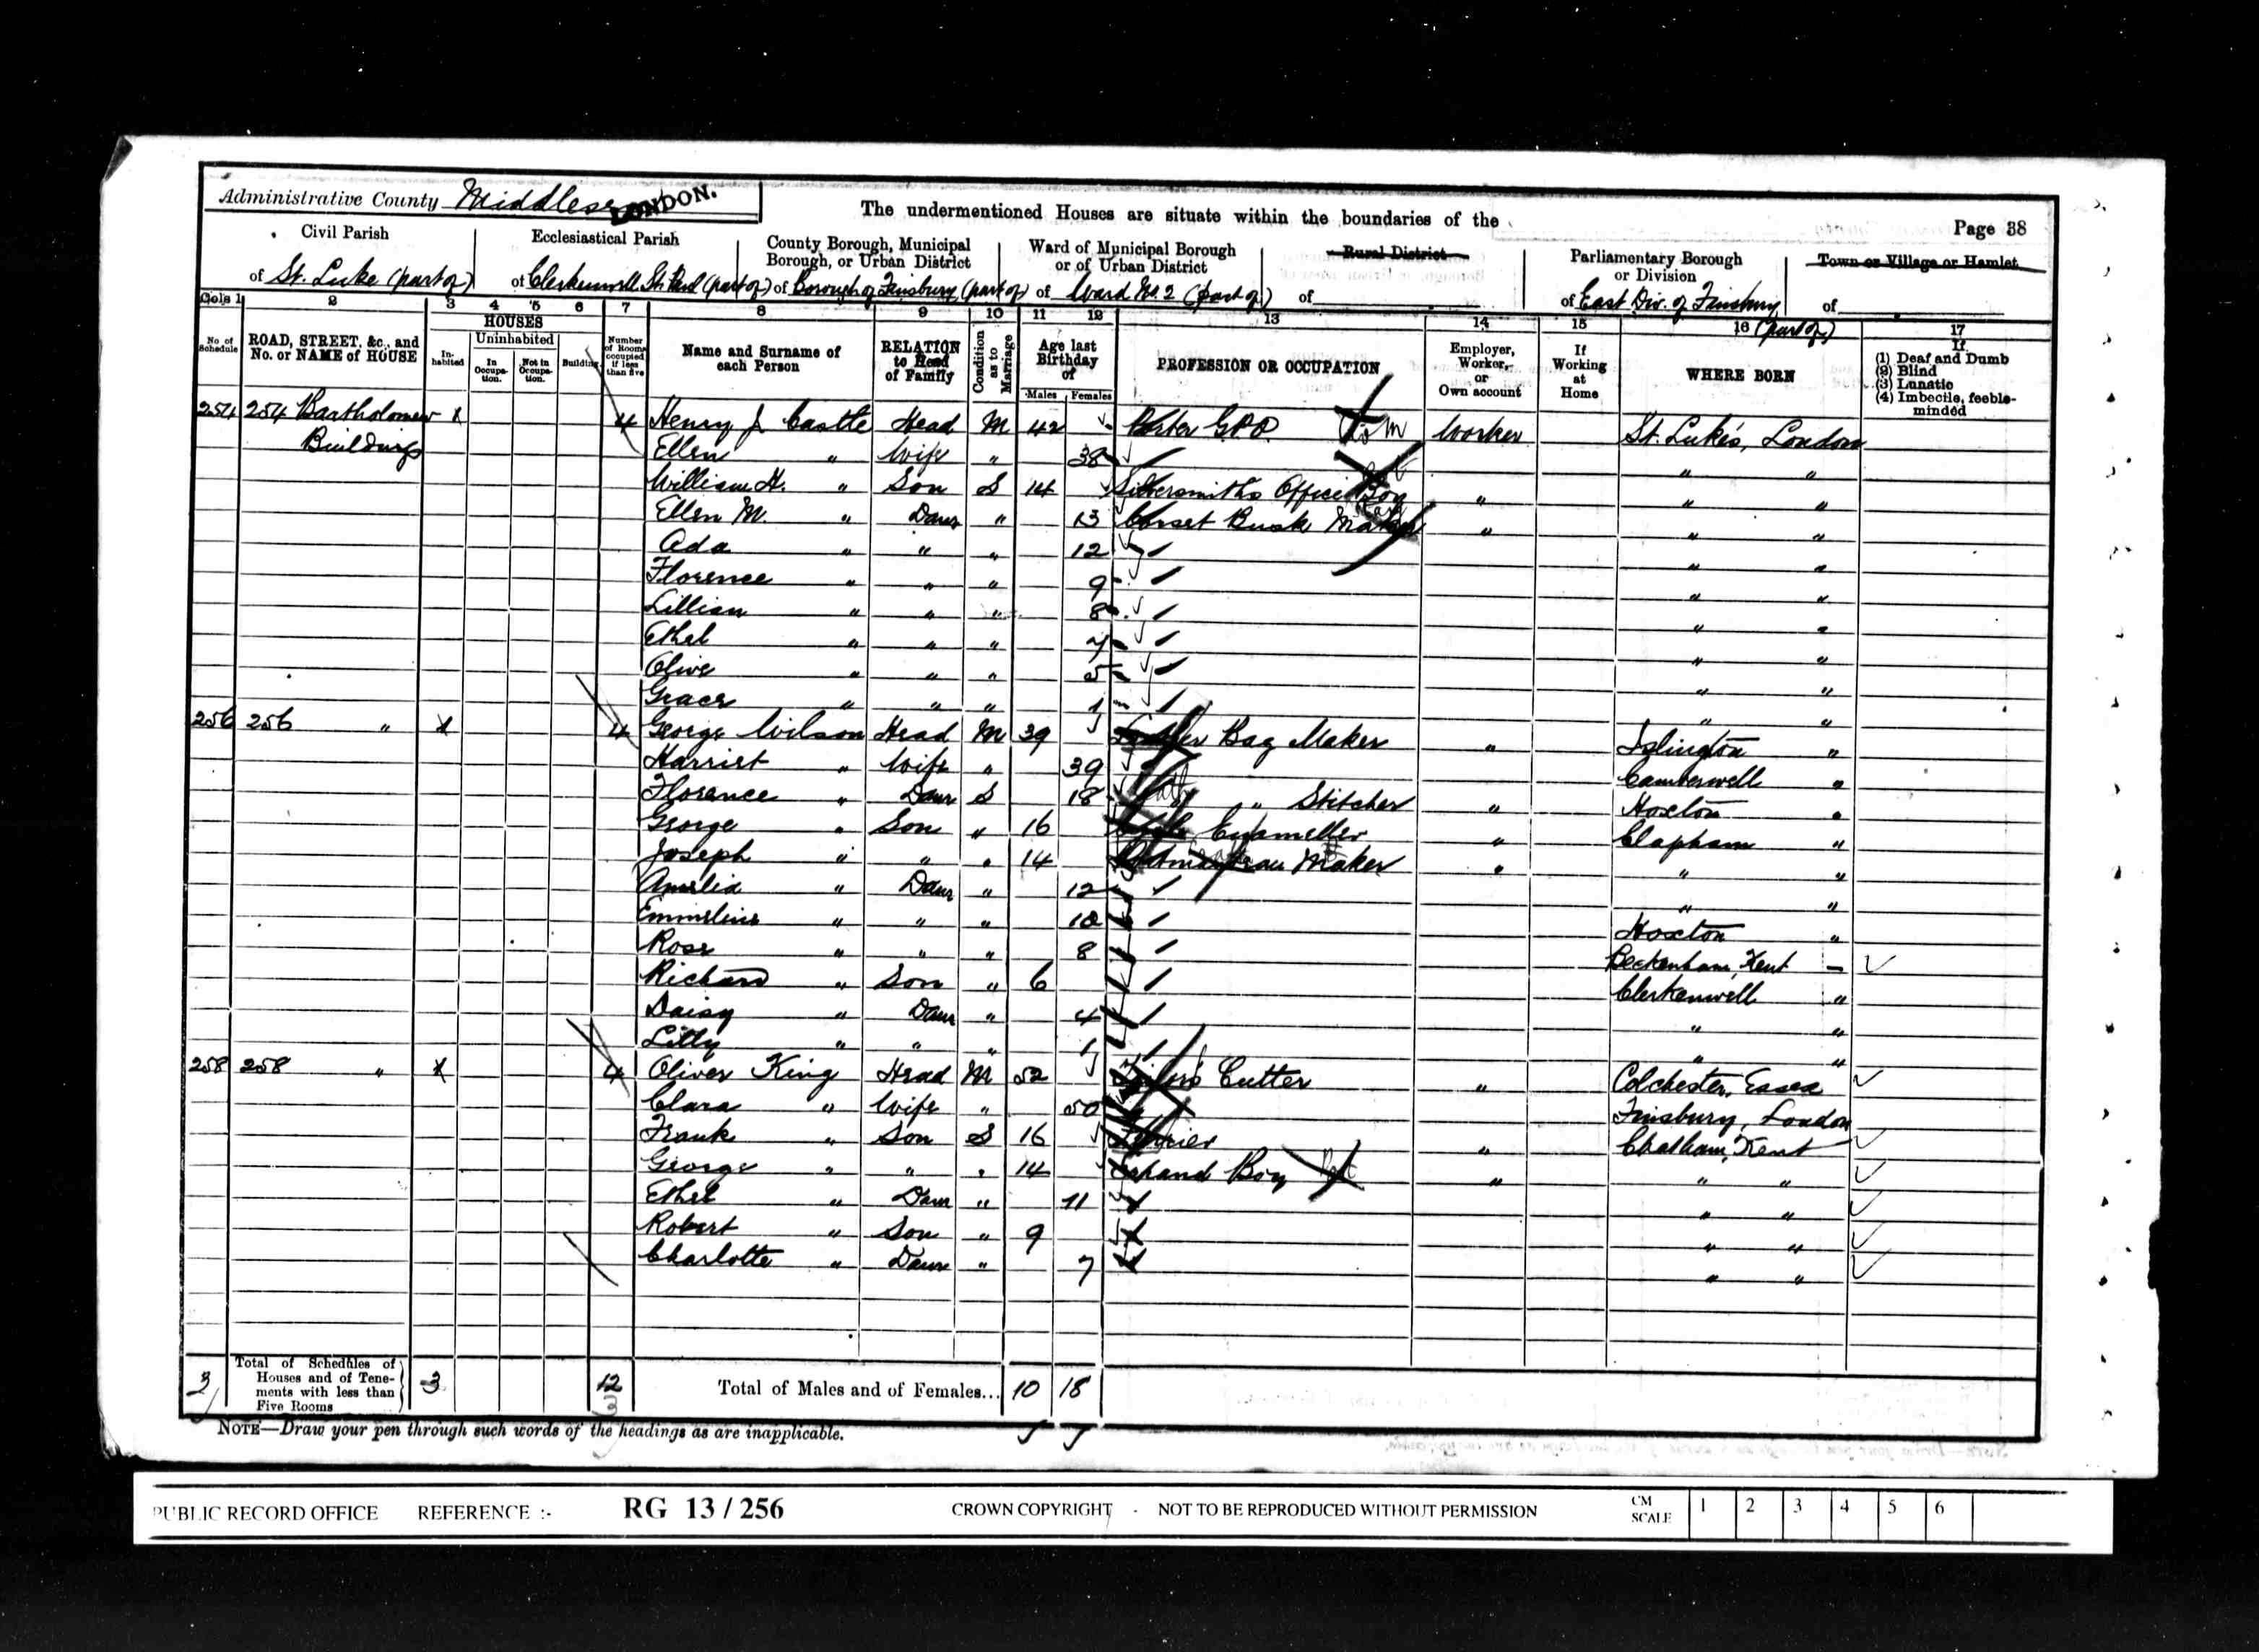 Administrative County Middlesex LONDON.
The undermentioned Houses are situate within the boundaries of the
Page 38
Civil Parish
of St. Luke (part of)
Ecclesiastical Parish
of Clerkenwell St. Paul (part of)
County Borough, Municipal
Borough, or Urban District
of Borough of Finsbury (part of)
Ward of Municipal Borough
or of Urban District
of Ward No. 2 (part of)
Rural District
of
Parliamentary Borough
or Division
of East Div. of Finsbury (part of)
Town or Village or Hamlet
of
Cols 1 2 3 4 5 6 7 8 9 10 11 12 13 14 15 16 17
No of Schedule
ROAD, STREET, &c., and No. or NAME of HOUSE
HOUSES
Inhabited
Uninhabited
In Occupation.
Not in Occupation.
Building
Number of Rooms occupied if less than five
Name and Surname of each Person
RELATION to Head of Family
Condition as to Marriage
Age last Birthday of
Males Females
PROFESSION OR OCCUPATION
Employer, Worker, or Own account
If Working at Home
WHERE BORN
If
(1) Deaf and Dumb
(2) Blind
(3) Lunatic
(4) Imbecile, feeble-minded
254 254 Bartholomew x 4 Henry J Castle Head M 42 Porter G.P.O. Worker St. Luke's, London
Buildings Ellen " Wife " 38 " "
William H. " Son S 14 Silversmiths Office Boy " " "
Ellen M. " Daur " 13 Corset Busk Maker " " "
Ada " " " 12 " "
Florence " " " 9 " "
Lillian " " " 8 " "
Ethel " " " 7 " "
Olive " " " 5 " "
Grace " " " 1 " "
256 256 " x 4 George Wilson Head M 39 Leather Bag Maker " Islington "
Harriet " Wife " 39 Camberwell "
Florence " Daur S 18 " Stitcher " Hoxton "
George " Son " 16 Cycle Enameller " Clapham "
Joseph " " " 14 Portmanteau Maker " " "
Amelia " Daur " 12 " "
Emmeline " " " 10 Hoxton "
Rose " " " 8 Beckenham, Kent –
Richard " Son " 6 Clerkenwell "
Daisy " Daur " 4 " "
Lilly " " " 1 " "
258 258 " x 4 Oliver King Head M 52 Tailor's Cutter " Colchester, Essex
Clara " Wife " 50 Finsbury, London
Frank " Son S 16 Furrier " Chatham, Kent
George " " " 14 Errand Boy " " "
Ethel " Daur " 11 " "
Robert " Son " 9 " "
Charlotte " Daur " 7 " "
3 Total of Schedules of Houses and of Tenements with less than Five Rooms 3 12 3 Total of Males and of Females... 10 18
NOTE—Draw your pen through such words of the headings as are inapplicable.
PUBLIC RECORD OFFICE REFERENCE :- RG 13 / 256 CROWN COPYRIGHT - NOT TO BE REPRODUCED WITHOUT PERMISSION CM SCALE 1 2 3 4 5 6